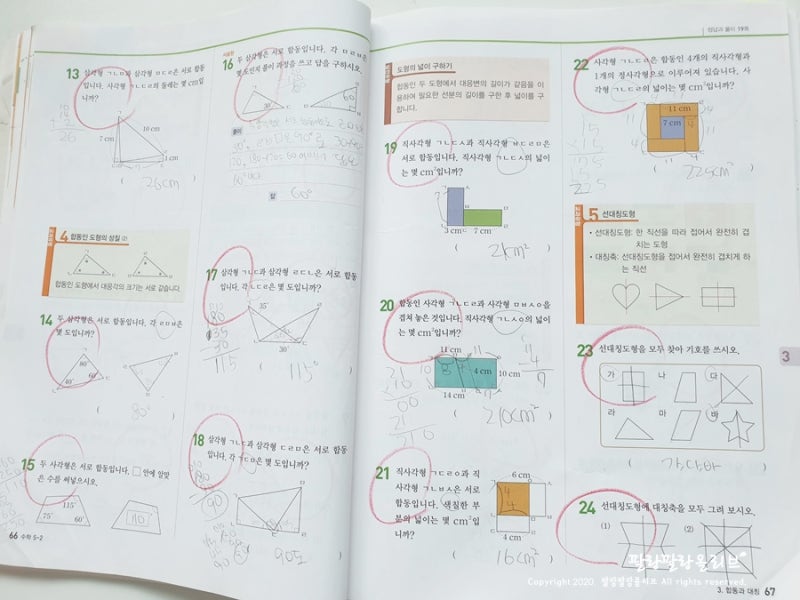 13 삼각형 ㄱㄴㅁ과 삼각형 ㅁㄷㄹ은 서로 합동
입니다. 사각형 ㄱㄴㄷㄹ의 둘레는 몇 cm입
니까?
7 cm
10 cm
1 cm
26
( 26cm )
개념유형
4 합동인 도형의 성질 (2)
합동인 도형에서 대응각의 크기는 서로 같습니다.
14 두 삼각형은 서로 합동입니다. 각 ㄹㅁㅂ은
몇 도입니까?
80°
40°
60°
( 80° )
15 두 사각형은 서로 합동입니다. □ 안에 알맞
은 수를 써넣으시오.
115°
75°
60°
110°
66 수학 5-2
서술형
16 두 삼각형은 서로 합동입니다. 각 ㅁㄹㅂ은
몇 도인지 풀이 과정을 쓰고 답을 구하시오.
30°
60
풀이
답 60°
17 삼각형 ㄱㄴㄷ과 삼각형 ㄹㄷㄴ은 서로 합동
입니다. 각 ㄴㄱㄷ은 몇 도입니까?
35°
30°
180
135
30
115
( 115° )
18 삼각형 ㄱㄴㄷ과 삼각형 ㄷㄹㅁ은 서로 합동
입니다. 각 ㄱㄷㅁ은 몇 도입니까?
90
( 90도 )
정답과 풀이 19쪽
개념유형
도형의 넓이 구하기
합동인 두 도형에서 대응변의 길이가 같음을 이
용하여 필요한 선분의 길이를 구한 후 넓이를 구
합니다.
19 직사각형 ㄱㄴㄷㅅ과 직사각형 ㅂㄷㄹㅁ은
서로 합동입니다. 직사각형 ㄱㄴㄷㅅ의 넓이
는 몇 cm²입니까?
3 cm
7 cm
( 21cm² )
20 합동인 사각형 ㄱㄴㄷㄹ과 사각형 ㅁㅂㅅㅇ을
겹쳐 놓은 것입니다. 직사각형 ㄱㄴㅅㅇ의 넓이
는 몇 cm²입니까?
11 cm
4 cm
10 cm
14 cm
( 210cm² )
21 직사각형 ㄱㄷㄹㅇ과 직
사각형 ㄱㄴㅂㅅ은 서로
합동입니다. 색칠한 부
분의 넓이는 몇 cm²입
니까?
6 cm
4
4
4 cm
( 16cm² )
22 사각형 ㄱㄴㄷㄹ은 합동인 4개의 직사각형과
1개의 정사각형으로 이루어져 있습니다. 사
각형 ㄱㄴㄷㄹ의 넓이는 몇 cm²입니까?
11 cm
7 cm
15
×15
225
( 225cm² )
개념유형
5 선대칭도형
• 선대칭도형: 한 직선을 따라 접어서 완전히 겹
치는 도형
• 대칭축: 선대칭도형을 접어서 완전히 겹치게 하
는 직선
23 선대칭도형을 모두 찾아 기호를 쓰시오.
가 나 다
라 마 바
( 가,다,바 )
24 선대칭도형에 대칭축을 모두 그려 보시오.
(1) (2)
3
3. 합동과 대칭 67
팔랑팔랑올리브
Copyright 2020. 팔랑팔랑올리브 All rights reserved.